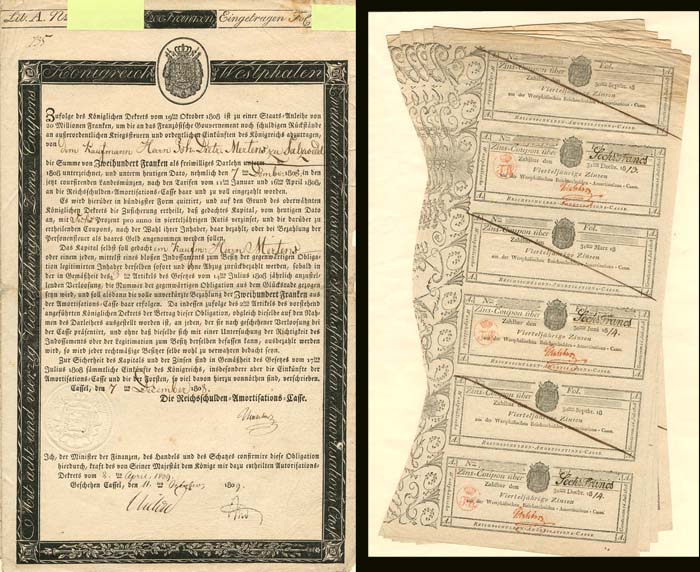 Lit. A. No
200 Franken
Eingetragen Fol
Königreich Westphalen
Zufolge des Königlichen Dekrets vom 19ten Oktober 1808 ist zu einer Staats-Anleihe von
20 Millionen Franken, um die an das Französische Gouvernement noch schuldigen Rückstände
an außerordentlichen Kriegssteuern und ordentlichen Einkünften des Königreichs abzutragen,
von dem Kaufmann Herrn Joh. Mertens zu Salzwedel
die Summe von Zweihundert Franken als freiwilliges Darlehn
1808 unterzeichnet, und unterm heutigen Dato, nehmlich den 7ten December 1808, in den
jetzt courstrenden Landesmünzen, nach den Tarifen vom 11ten Januar und 16ten April 1808,
die Reichsschulden-Amortisations-Casse baar und zu voll eingezahlt worden.
Es wird hierüber in bündigster Form quittiret, und auf den Grund des oberwähnten
Königlichen Dekrets die Zusicherung ertheilt, daß gedachtes Kapital, vom heutigen Dato
an, mit Sechs Prozent pro anno in vierteljährigen Ratis verzinset, und die darüber zu
ertheilenden Coupons, nach der Wahl ihrer Inhaber, baar bezahlt, oder bei Bezahlung der
Personensteuer als baares Geld angenommen werden sollen.
Das Kapital selbst soll gedachtem Kaufm. Herrn Mertens
oder einem jeden, mittelst eines bloßen Indossaments zum Besitz der gegenwärtigen Obligation
legitimirten Inhaber derselben sofort und ohne Abzug zurückbezahlt werden, sobald in
der in Gemäßheit des 3ten Artikels des Gesetzes vom 14ten Julius 1808 jährlich anzustel-
lenden Verloosung, die Nummer der gegenwärtigen Obligation aus dem Glücksrade gezogen
seyn wird, und soll alsdann die volle unverkürzte Bezahlung der Zweihundert Franken
aus der Amortisations-Casse baar erfolgen. Da indessen zufolge des 2ten Artikels des vorstehend
angezogenen Königlichen Dekrets der Betrag dieser Obligation, obgleich dieselbe auf den Nah-
men des Darleihers ausgestellt worden ist, an jeden, der sie nach geschehener Verloosung bei der
Casse präsentirt, und ohne daß dieselbe sich mit einer Untersuchung der Richtigkeit des
Indossements oder der Legitimation zum Besitz derselben befassen kann, ausbezahlt werden
wird, so wird jeder rechtmäßige Besitzer selbe wohl zu verwahren bedacht seyn.
Zur Sicherheit des Kapitals und der Zinsen sind in Gemäßheit des Gesetzes vom 17ten
Julius 1808 sämtliche Einkünfte des Königreichs, insbesondere aber die Einkünfte der
Amortisations-Casse und die so viel davon hierzu vonnöthen sind, verschrieben.
Cassel, den 7ten December 1808.
Die Reichsschulden-Amortisations-Casse.
Ich, der Minister der Finanzen, des Handels und des Schatzes confirmire diese Obligation
hierdurch, kraft des von Seiner Majestät dem Könige mir dazu ertheilten Autorisations-
Dekrets vom 8. April 1809.
Geschehen Cassel, den 11. October 1809.
Mit acht und vierzig vierteljährigen Zins-Coupons
Zins-Coupon über Fol.
Zahlbar den 30sten Septbr. 18
Vierteljährige Zinsen
aus der Westphälischen Reichsschulden-Amortisations-Casse.
Reichsschulden-Amortisations-Casse.
A. No
Zins-Coupon über Sechs Francs
Zahlbar den 31sten Decbr. 1813.
Vierteljährige Zinsen
aus der Westphälischen Reichsschulden-Amortisations-Casse.
Reichsschulden-Amortisations-Casse.
A. No
Zins-Coupon über Fol.
Zahlbar den 31sten März 18
Vierteljährige Zinsen
aus der Westphälischen Reichsschulden-Amortisations-Casse.
Reichsschulden-Amortisations-Casse.
A. No
Zins-Coupon über Sechs Francs
Zahlbar den 30sten Juni 1814.
Vierteljährige Zinsen
aus der Westphälischen Reichsschulden-Amortisations-Casse.
Reichsschulden-Amortisations-Casse.
A. No
Zins-Coupon über Fol.
Zahlbar den 30sten Septbr. 18
Vierteljährige Zinsen
aus der Westphälischen Reichsschulden-Amortisations-Casse.
Reichsschulden-Amortisations-Casse.
A. No
Zins-Coupon über Sechs Francs
Zahlbar den 31sten Decbr. 1814.
Vierteljährige Zinsen
aus der Westphälischen Reichsschulden-Amortisations-Casse.
Reichsschulden-Amortisations-Casse.